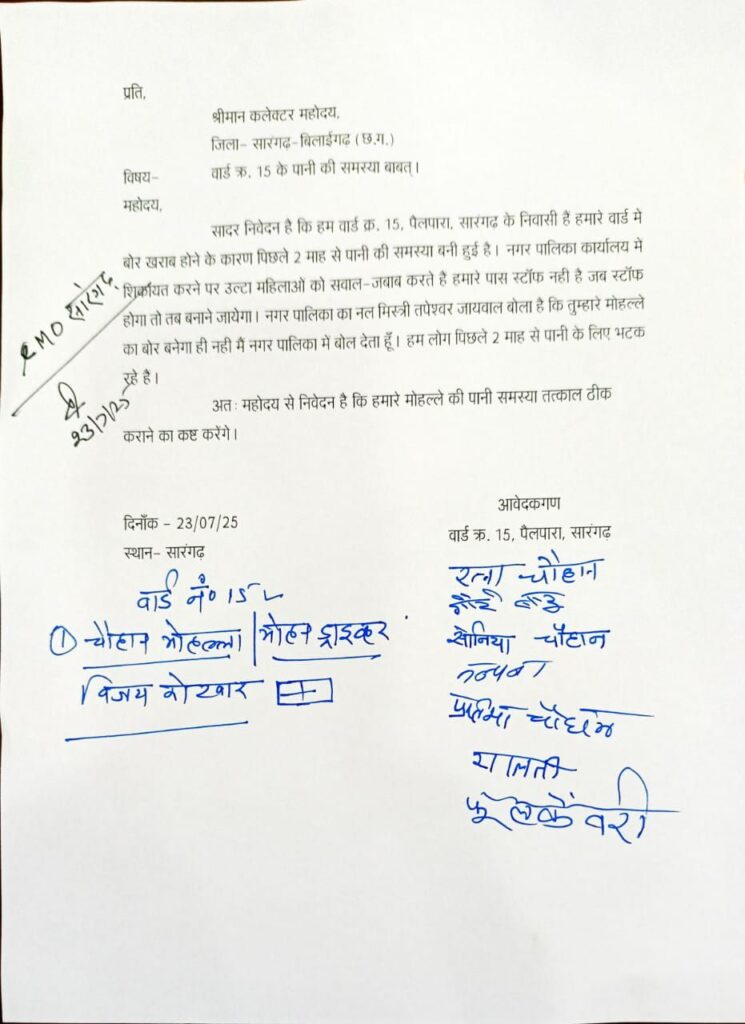 प्रति,
श्रीमान कलेक्टर महोदय,
जिला- सारंगढ़-बिलाईगढ़ (छ.ग.)
विषय- वार्ड क्र. 15 के पानी की समस्या बाबत्।
महोदय,
सादर निवेदन है कि हम वार्ड क्र. 15, पैलपारा, सारंगढ़ के निवासी हैं हमारे वार्ड में
बोर खराब होने के कारण पिछले 2 माह से पानी की समस्या बनी हुई है। नगर पालिका कार्यालय में
शिकायत करने पर उल्टा महिलाओं को सवाल-जबाब करते है हमारे पास स्टॉफ नही है जब स्टॉफ
होगा तो तब बनाने जायेगा। नगर पालिका का नल मिस्त्री तपेश्वर जायवाल बोला है कि तुम्हारे मोहल्ले
का बोर बनेगा ही नही मैं नगर पालिका में बोल देता हूँ। हम लोग पिछले 2 माह से पानी के लिए भटक
रहे है।
अतः महोदय से निवेदन है कि हमारे मोहल्ले की पानी समस्या तत्काल ठीक
कराने का कष्ट करेंगे।
CMO सारंगढ़
23/7/25
दिनाँक - 23/07/25
स्थान- सारंगढ़
आवेदकगण
वार्ड क्र. 15, पैलपारा, सारंगढ़
वार्ड नं० 15
① चौहान मोहल्ला | मोहन ड्राइवर
विजय
रत्ना चौहान
सोनिया चौहान
चौहान
मालती
फूलकँवरी